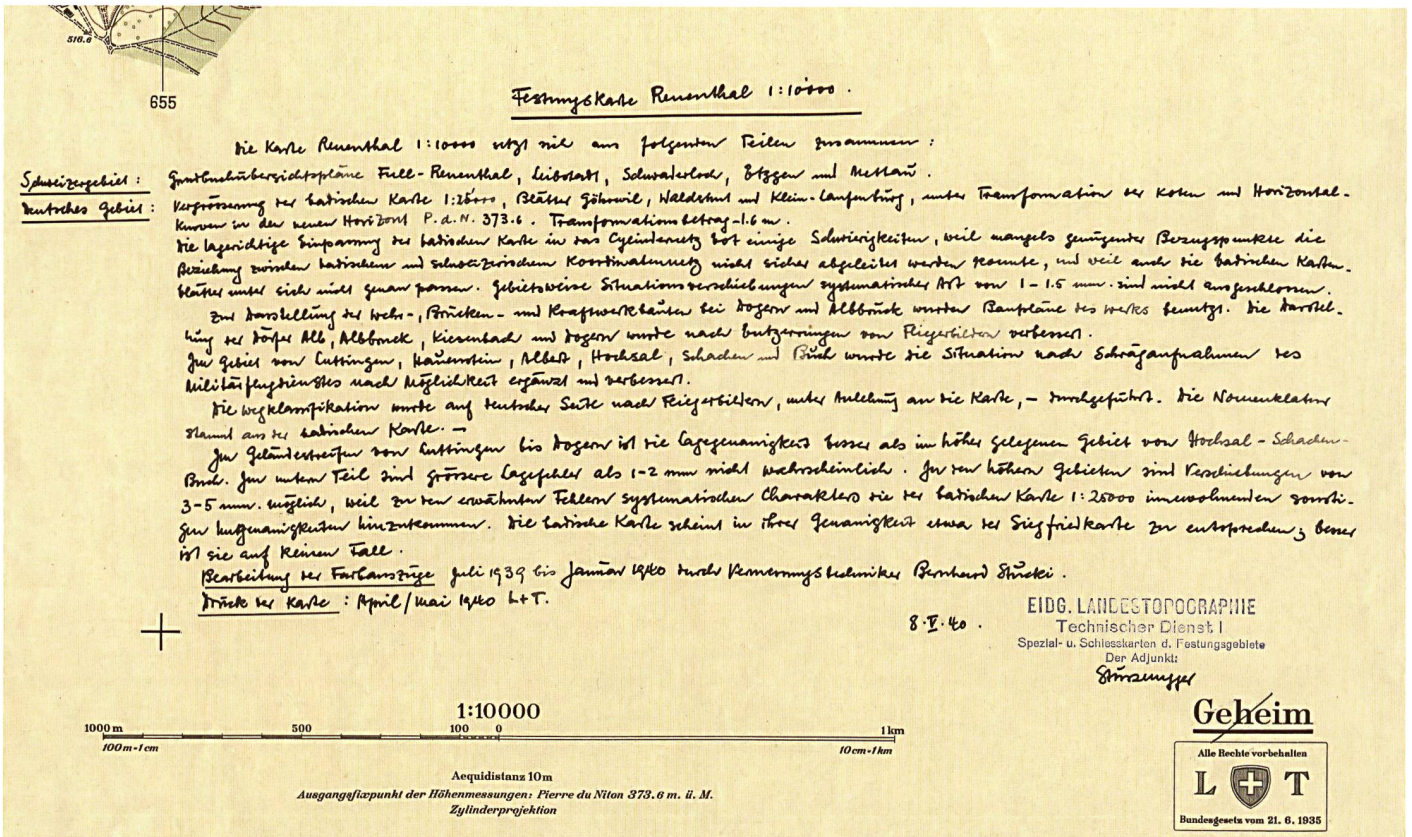 516.6
655
Festungskarte Reuenthal 1:10'000.
Die Karte Reuenthal 1:10000 setzt sich aus folgenden Teilen zusammen:
Schweizergebiet: Grundbuchübersichtspläne Full-Reuenthal, Leibstadt, Schwaderloch, Etzgen und Mettau.
Deutsches Gebiet: Vergrösserung der badischen Karte 1:25000, Blätter Görwil, Waldshut und Klein-Laufenburg, unter Transformation der Koten und Horizontal-
kurven in den neuen Horizont P.d.N. 373.6. Transformationsbetrag -1.6 m.
Die lagerichtige Einpassung der badischen Karte in das Cylindernetz bot einige Schwierigkeiten, weil mangels genügender Bezugspunkte die
Beziehung zwischen badischem und schweizerischem Koordinatennetz nicht sicher abgeleitet werden konnte, und weil auch die badischen Karten-
blätter unter sich nicht genau passen. Gebietsweise Situationsverschiebungen systematischer Art von 1-1.5 mm. sind nicht ausgeschlossen.
Zur Darstellung der Wehr-, Brücken- und Kraftwerkbauten bei Dogern und Albbruck wurden Baupläne des Werks benutzt. Die Darstel-
lung der Dörfer Alb, Albbruck, Kiesenbach und Dogern wurde nach Entzerrungen von Fliegerbildern verbessert.
Im Gebiet von Luttingen, Hauenstein, Albert, Hochsal, Schachen und Buch wurde die Situation nach Schrägaufnahmen des
Militärflugdienstes nach Möglichkeit ergänzt und verbessert.
Die Wegklassifikation wurde auf deutscher Seite nach Fliegerbildern, unter Anlehnung an die Karte, - durchgeführt. Die Nomenklatur
stammt aus der badischen Karte. -
Im Geländestreifen von Luttingen bis Dogern ist die Lagegenauigkeit besser als im höher gelegenen Gebiet von Hochsal - Schachen-
Buch. Im untern Teil sind grössere Lagefehler als 1-2 mm nicht wahrscheinlich. In den höhern Gebieten sind Verschiebungen von
3-5 mm. möglich, weil zu den erwähnten Fehlern systematischen Charakters die der badischen Karte 1:25000 innewohnenden sonsti-
gen Ungenauigkeiten hinzukommen. Die badische Karte scheint in ihrer Genauigkeit etwa der Siegfriedkarte zu entsprechen; besser
ist sie auf keinen Fall.
Bearbeitung der Farbauszüge Juli 1939 bis Januar 1940 durch Vermessungstechniker Bernhard Stucki.
Druck der Karte: April/Mai 1940 L+T.
8.V.40.
EIDG. LANDESTOPOGRAPHIE
Technischer Dienst I
Spezial- u. Schiesskarten d. Festungsgebiete
Der Adjunkt:
Geheim
1:10000
1000 m 500 100 0 1 km
100 m = 1 cm 10 cm = 1 km
Aequidistanz 10 m
Ausgangsfixpunkt der Höhenmessungen: Pierre du Niton 373.6 m. ü. M.
Zylinderprojektion
Alle Rechte vorbehalten
L T
Bundesgesetz vom 21. 6. 1935